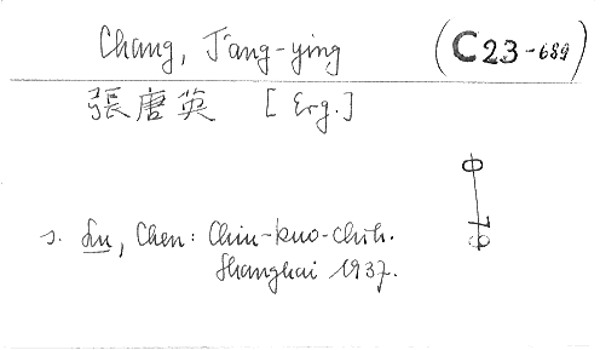 Chang, T'ang-ying (C23-689)
張唐英 [Erg.]
s. Lu, Chen: Chiu-kuo-chih.
Shanghai 1937.